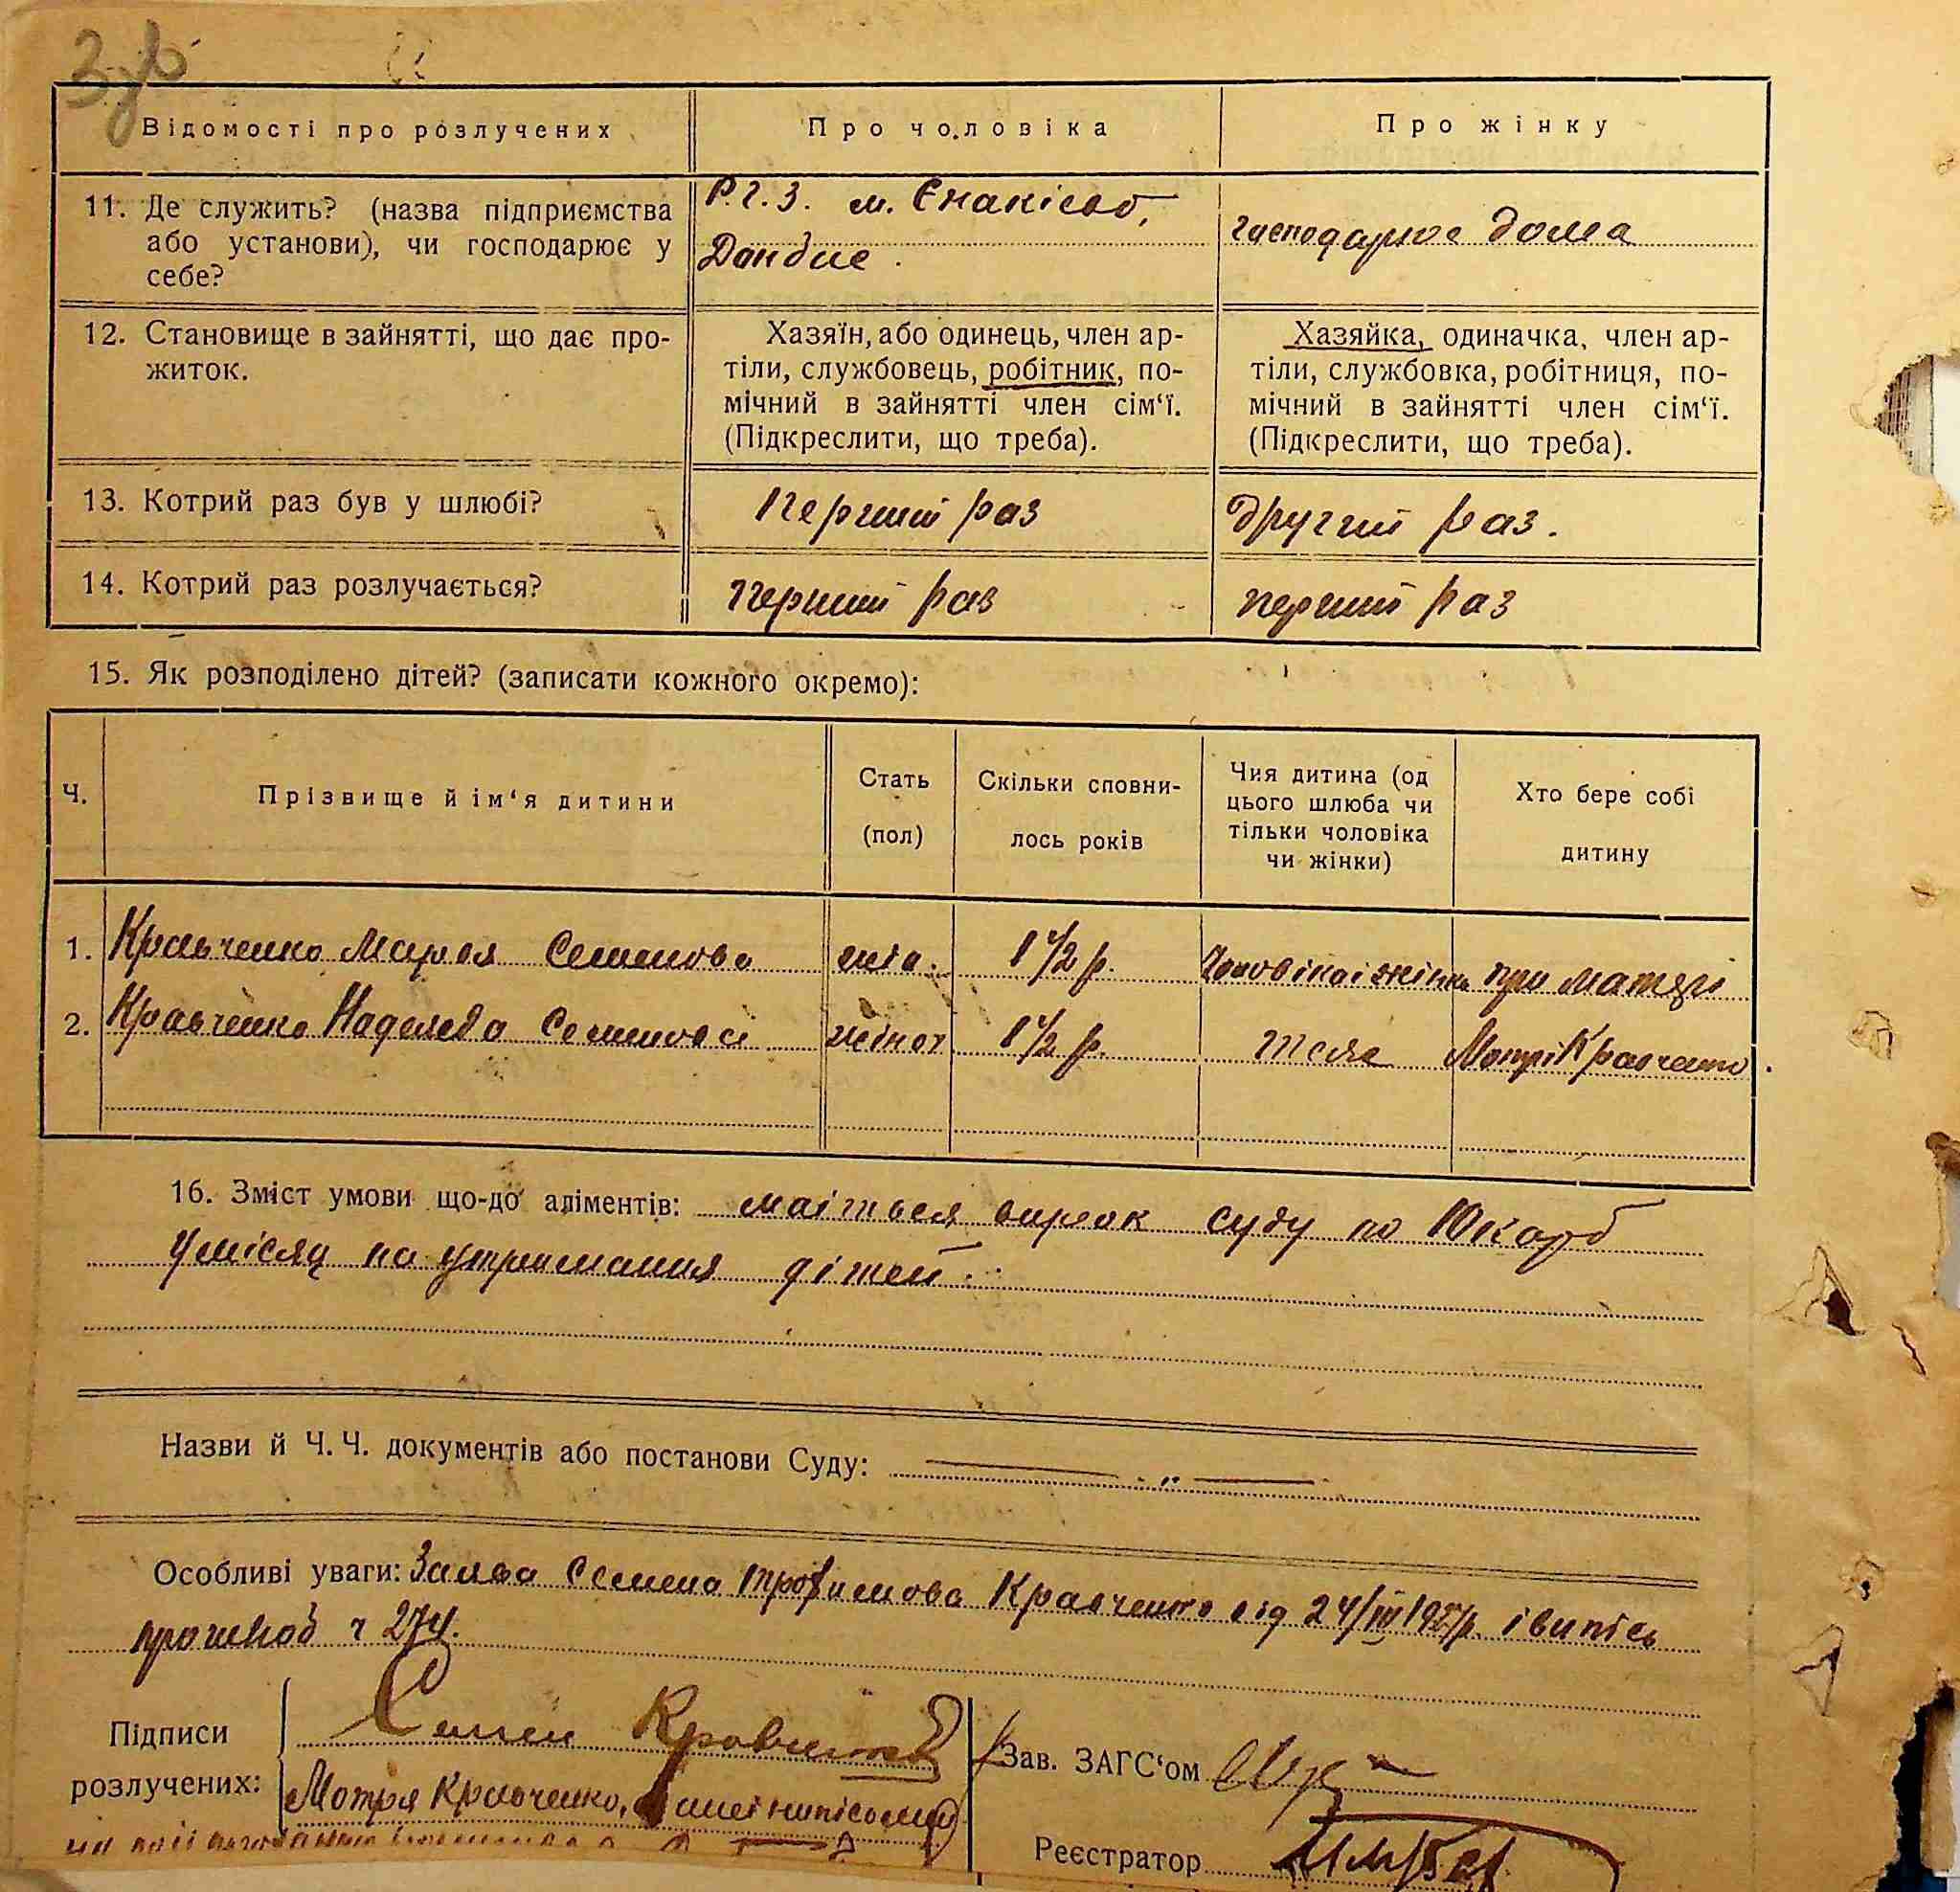 Відомості про розлучених
Про чоловіка
Про жінку
11. Де служить? (назва підприємства
або установи), чи господарює у
себе?
Р.г.З. м. Єнакієво,
господарює дома
12. Становище в зайнятті, що дає про-
житок.
Хазяїн, або одинець, член ар-
тіли, службовець, робітник, по-
мічний в зайнятті член сім‘ї.
(Підкреслити, що треба).
Хазяйка, одиначка, член ар-
тіли, службовка, робітниця, по-
мічний в зайнятті член сім‘ї.
(Підкреслити, що треба).
13. Котрий раз був у шлюбі?
Перший раз
другий раз.
14. Котрий раз розлучається?
перший раз
перший раз
15. Як розподілено дітей? (записати кожного окремо):
Ч.
Прізвище й ім‘я дитини
Стать
(пол)
Скільки сповни-
лось років
Чия дитина (од
цього шлюба чи
тільки чоловіка
чи жінки)
Хто бере собі
дитину
1. Кравченко Марія Семенова
1 1/2 р.
чоловіка і жінки
при матері
2. Кравченко Надежда Семеновні
жіноч
1 1/2 р.
теж
Мотрі Кравченко.
16. Зміст умови що-до аліментів: маіться вирок суду по 10 карб
у місяц на утримання дітей.
Назви й Ч. Ч. документів або постанови Суду:
Особливі уваги: Заява Семена Трофимова Кравченко від 24/III р. і випісь
прошлюб ч 274.
Підписи
розлучених:
Семен Кравченко
Мотря Кравченко, а
Зав. ЗАГС‘ом
Реєстратор